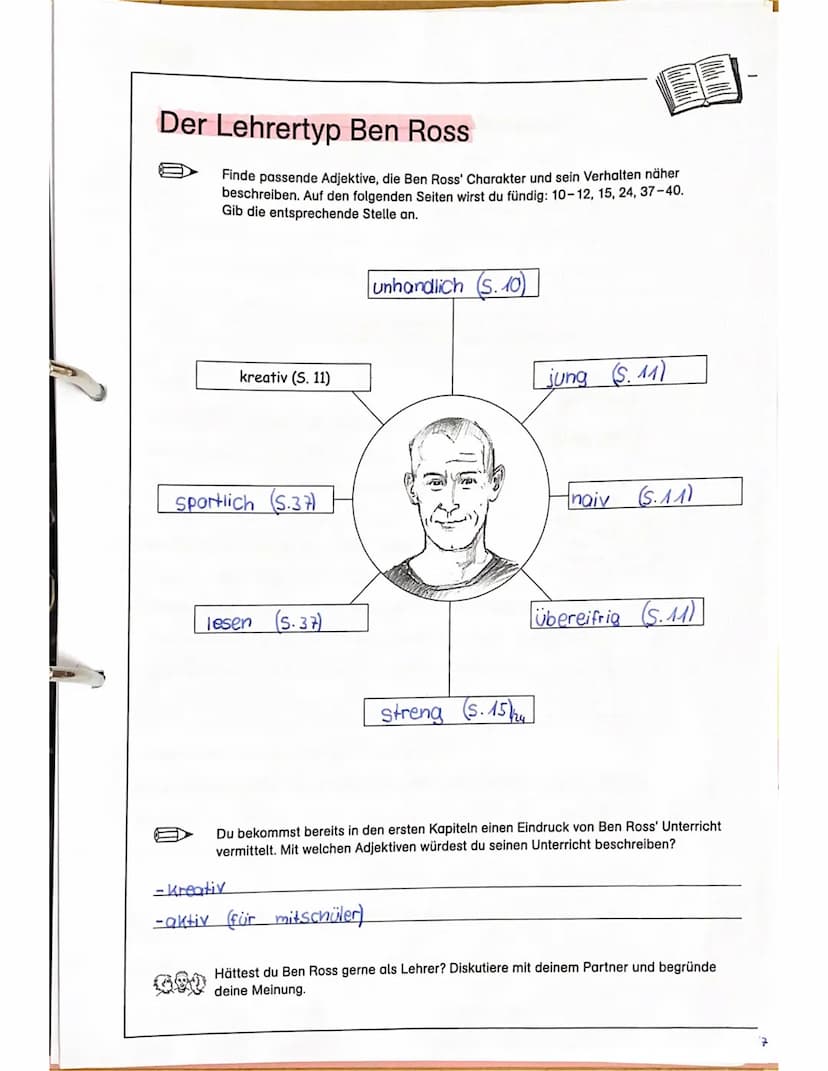 Der Lehrertyp Ben Ross
Finde passende Adjektive, die Ben Ross' Charakter und sein Verhalten näher
beschreiben. Auf den folgenden Seiten wirst du fündig: 10–12, 15, 24, 37–40.
Gib die entsprechende Stelle an.
unhandlich (S. 10)
kreativ (S. 11)
jung (S. 11)
sportlich (S. 37)
naiv (S. 11)
lesen (S. 37)
übereifrig (S. 11)
streng (S. 15)/24
Du bekommst bereits in den ersten Kapiteln einen Eindruck von Ben Ross' Unterricht
vermittelt. Mit welchen Adjektiven würdest du seinen Unterricht beschreiben?
-kreativ
-aktiv (für mitschüler)
Hättest du Ben Ross gerne als Lehrer? Diskutiere mit deinem Partner und begründe
deine Meinung.
7